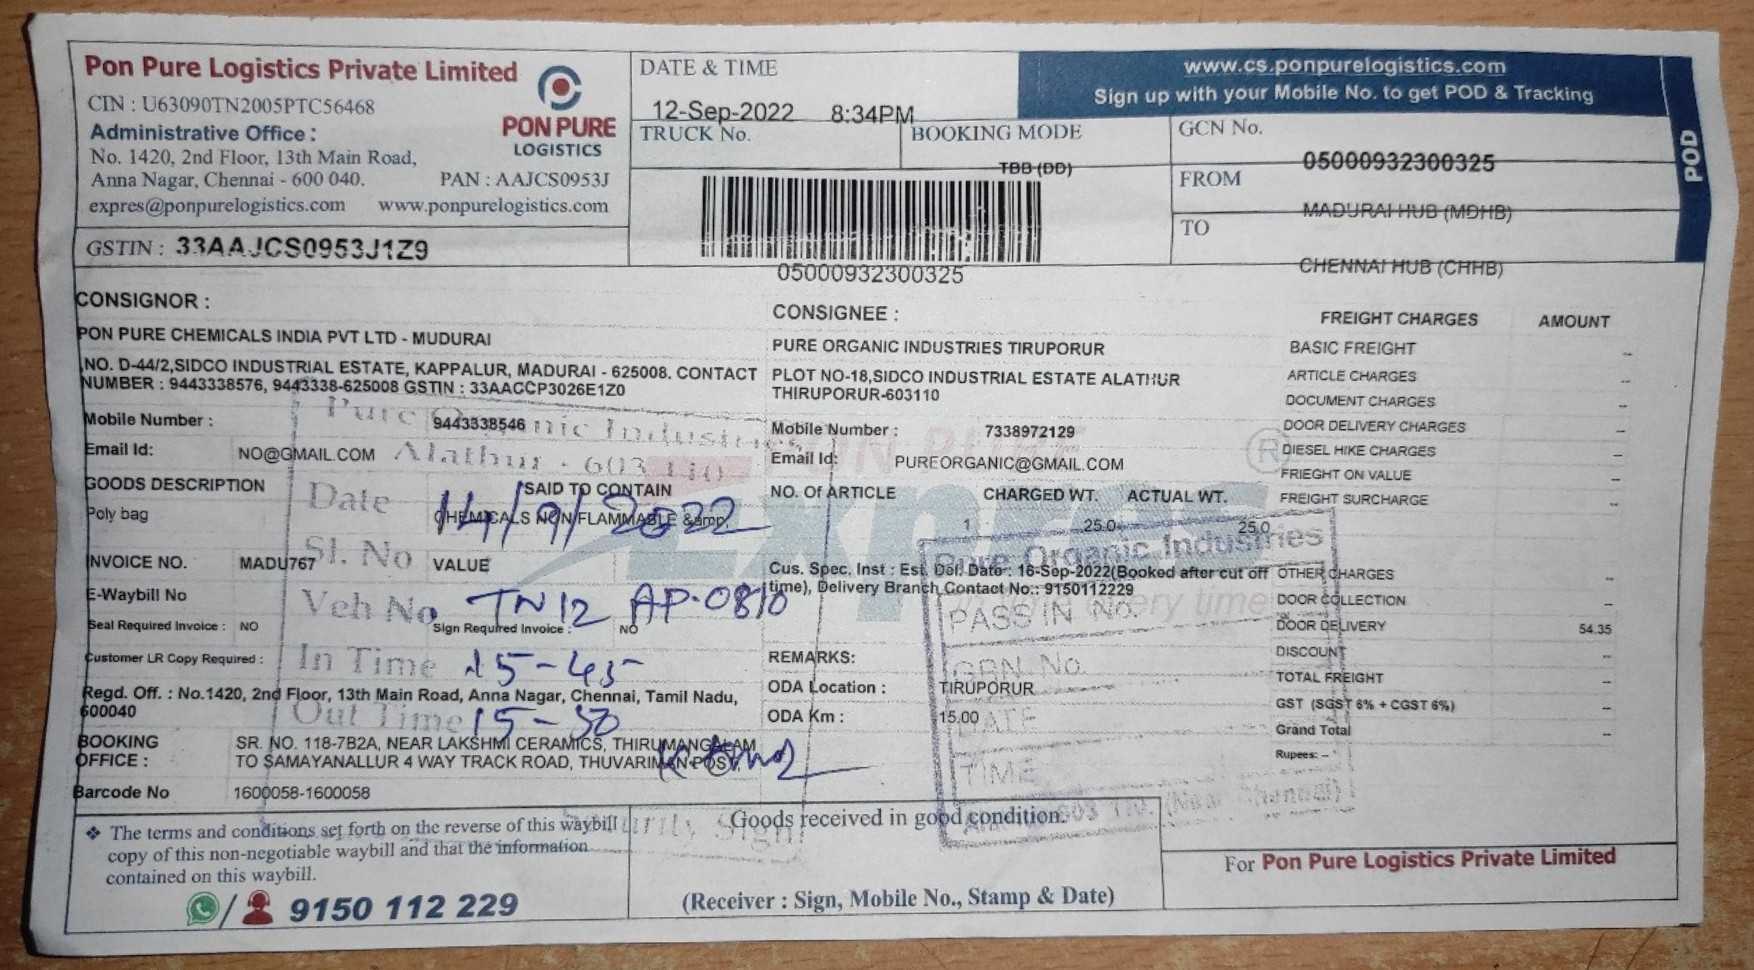 Pon Pure Logistics Private Limited
CIN : U63090TN2005PTC56468
Administrative Office :
No. 1420, 2nd Floor, 13th Main Road,
Anna Nagar, Chennai - 600 040. PAN : AAJCS0953J
expres@ponpurelogistics.com www.ponpurelogistics.com
PON PURE
LOGISTICS
GSTIN : 33AAJCS0953J1Z9
DATE & TIME
12-Sep-2022 8:34PM
TRUCK No.
BOOKING MODE
TBB (DD)
05000932300325
www.cs.ponpurelogistics.com
Sign up with your Mobile No. to get POD & Tracking
GCN No.
05000932300325
FROM
MADURAI HUB (MDHB)
TO
CHENNAI HUB (CHHB)
POD
CONSIGNOR :
PON PURE CHEMICALS INDIA PVT LTD - MUDURAI
NO. D-44/2,SIDCO INDUSTRIAL ESTATE, KAPPALUR, MADURAI - 625008. CONTACT
NUMBER : 9443338576, 9443338-625008 GSTIN : 33AACCP3026E1Z0
Mobile Number : 9443338546
Email Id: NO@GMAIL.COM
GOODS DESCRIPTION SAID TO CONTAIN
Poly bag CHEMICALS NON FLAMMABLE &amp;
INVOICE NO. MADU767 VALUE
E-Waybill No
Seal Required Invoice : NO Sign Required Invoice : NO
Customer LR Copy Required :
Regd. Off. : No.1420, 2nd Floor, 13th Main Road, Anna Nagar, Chennai, Tamil Nadu,
600040
BOOKING OFFICE : SR. NO. 118-7B2A, NEAR LAKSHMI CERAMICS, THIRUMANGALAM
TO SAMAYANALLUR 4 WAY TRACK ROAD, THUVARIMAN POST,
Barcode No 1600058-1600058
Pure Organic Industries
Alathur - 603 110
Date 14/9/2022
Sl. No
Veh No TN 12 AP-0810
In Time 15-45
Out Time 15-50
Security Sign
CONSIGNEE :
PURE ORGANIC INDUSTRIES TIRUPORUR
PLOT NO-18,SIDCO INDUSTRIAL ESTATE ALATHUR
THIRUPORUR-603110
Mobile Number : 7338972129
Email Id: PUREORGANIC@GMAIL.COM
NO. Of ARTICLE CHARGED WT. ACTUAL WT.
1 25.0 25.0
Cus. Spec. Inst : Est. Del. Date : 16-Sep-2022(Booked after cut off
time), Delivery Branch Contact No.: 9150112229
REMARKS:
ODA Location : TIRUPORUR
ODA Km : 15.00
PON PURE
Expres
®
every time
Pure Organic Industries
PASS IN No.
GRN. No.
DATE
TIME
603 110.
FREIGHT CHARGES AMOUNT
BASIC FREIGHT --
ARTICLE CHARGES --
DOCUMENT CHARGES --
DOOR DELIVERY CHARGES --
DIESEL HIKE CHARGES --
FRIEGHT ON VALUE --
FREIGHT SURCHARGE --
OTHER CHARGES --
DOOR COLLECTION --
DOOR DELIVERY 54.35
DISCOUNT --
TOTAL FREIGHT --
GST (SGST 6% + CGST 6%) --
Grand Total --
Rupees: --
❖ The terms and conditions set forth on the reverse of this waybill
copy of this non-negotiable waybill and that the information
contained on this waybill.
9150 112 229
Goods received in good condition.
(Receiver : Sign, Mobile No., Stamp & Date)
For Pon Pure Logistics Private Limited